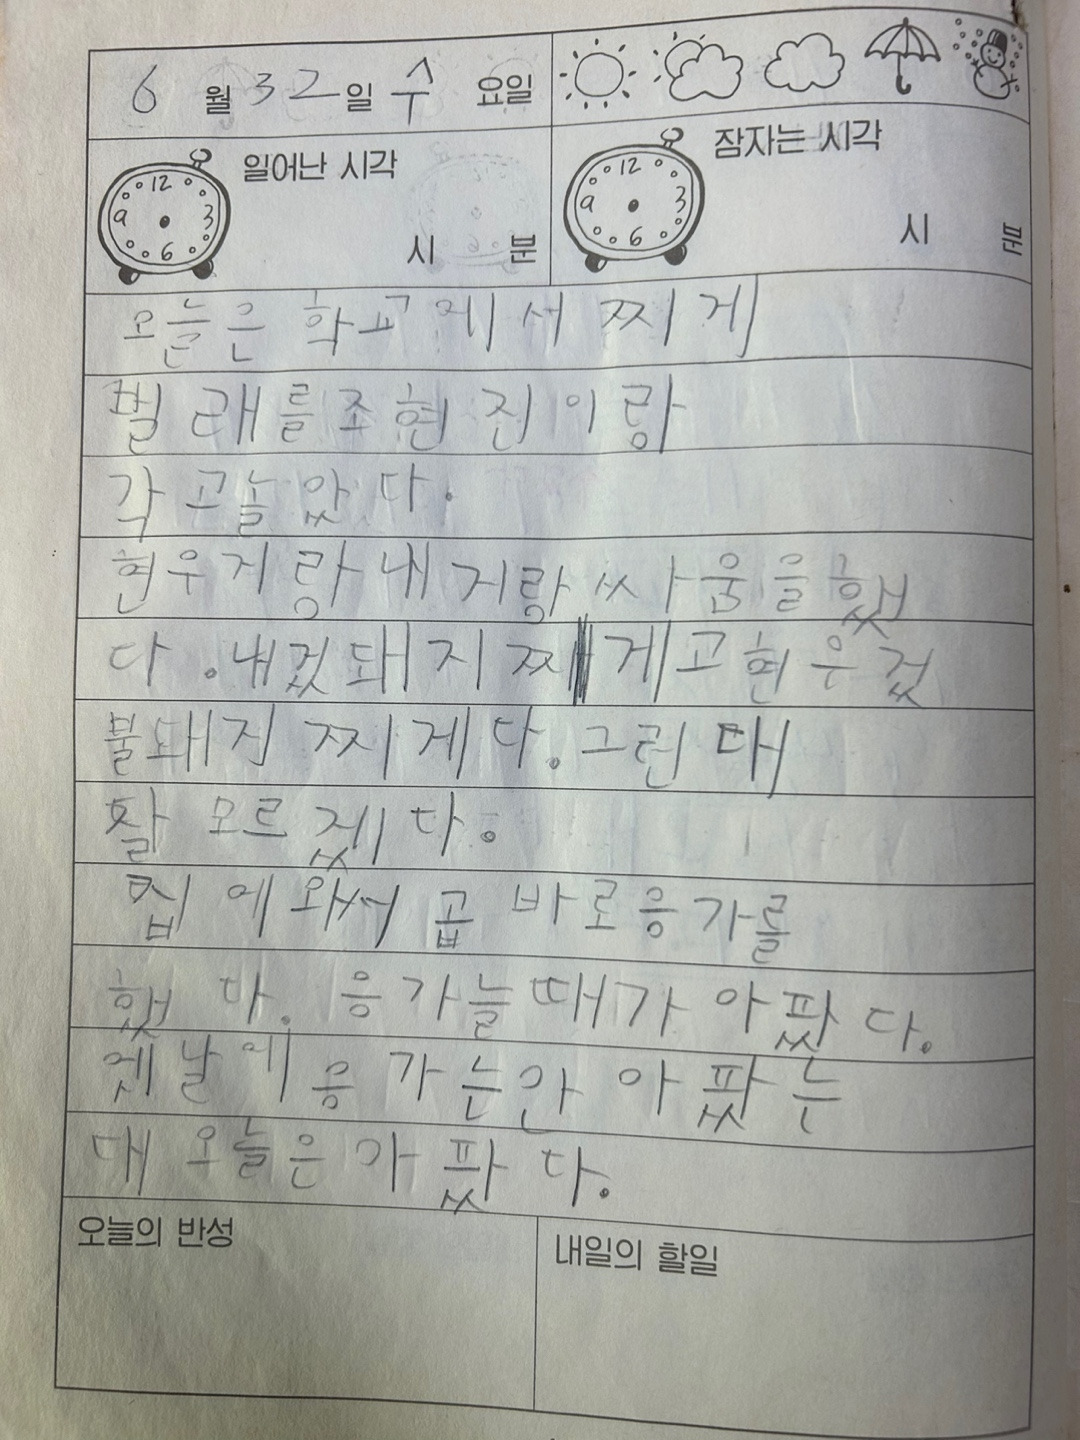 6 월 32 일 수 요일
일어난 시각
12 3 6 9
시 분
잠자는 시각
12 3 6 9
시 분
오늘은 학교에서 찌게
벌래를조현진이랑
각고놀았다.
현우지랑내거랑싸움을했
다.내겄돼지찌게고현우겄
불돼지찌게다.그런대
잘모르겠다.
집에와서곱바로응가를
했다.응가늘때가아팠다.
옛날에응가는안아팠는
대오늘은아팠다.
오늘의 반성
내일의 할일